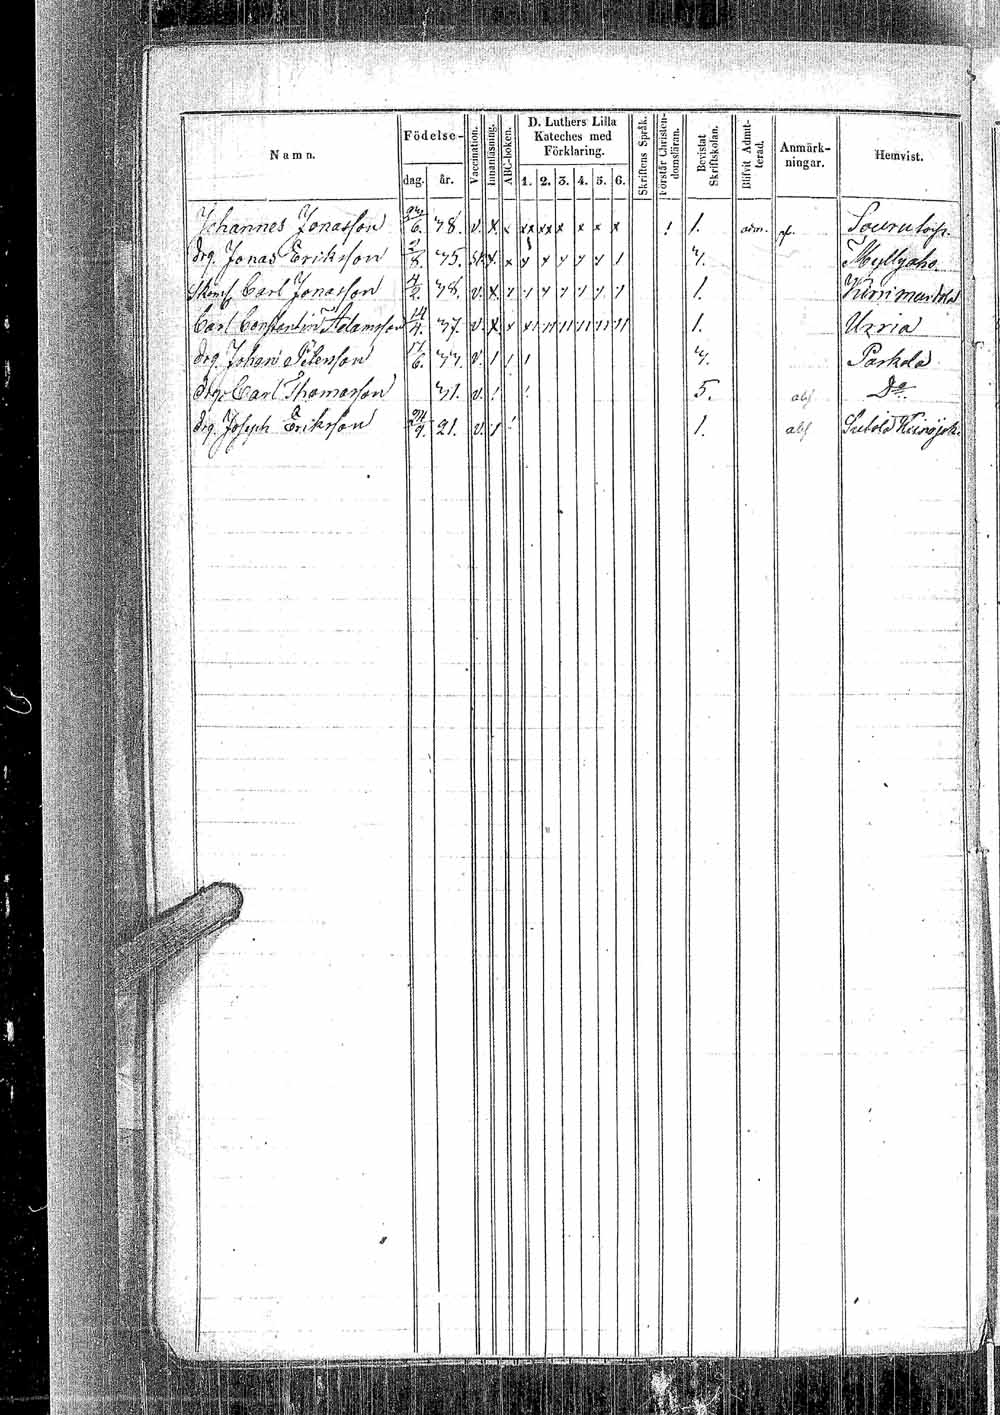 Namn. Födelse- dag. år. Vaccination. Innanläsning. ABC-boken. D. Luthers Lilla Kateches med Förklaring. 1. 2. 3. 4. 5. 6. Skriftens Språk. Förstår Christendomsläran. Bevistat Skriftskolan. Blifvit Admitterad. Anmärkningar. Hemvist.
Johannes Jonasson 6. 78. v. x x xx xx x x x x ! 1. adm.
Drg. Jonas Eriksson 2/8. 75. x 7. Myllyaho
Carl Jonasson 4/2. 78. v. x 1.
Carl Constantin Adamsson 14/4. 77. v. x x 1.
Drg. Johan Petersson 17/6. 77. v. 1 ! 1 7. Parkola
Drg. Carl Thomasson 71. v. ! ! 5. abs Do
Drg. Joseph Eriksson 24/9. 21. v. 1 ! 1. abs